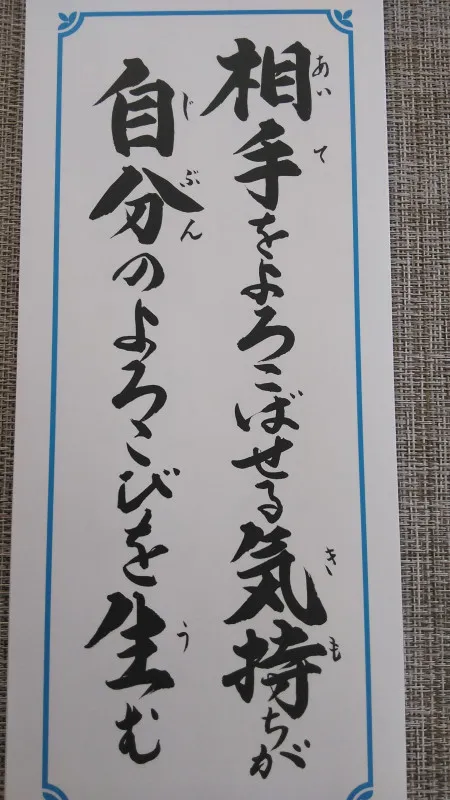 相手をよろこばせる気持ちが
自分のよろこびを生む
あいて
きも
じぶん
う